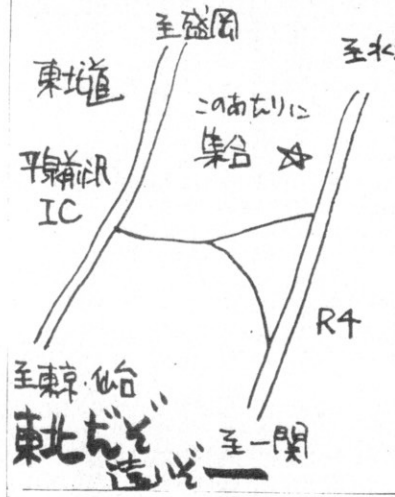 至盛岡
至水
東北道
このあたりに
集合
平泉前沢
IC
R4
至東京・仙台
東北だぞ
遠いぞ
至一関